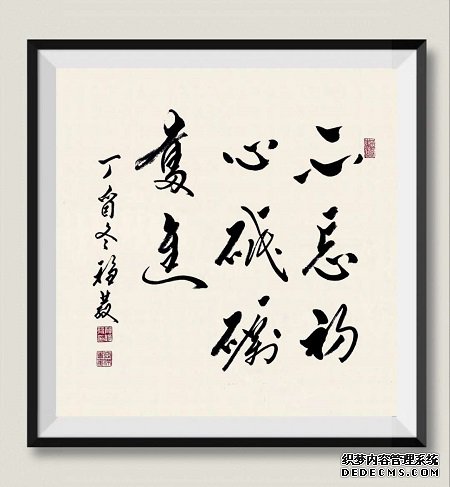 不忘初
心砥礪
奮進
丁酉冬
织梦内容管理系统
DEDECMS.COM